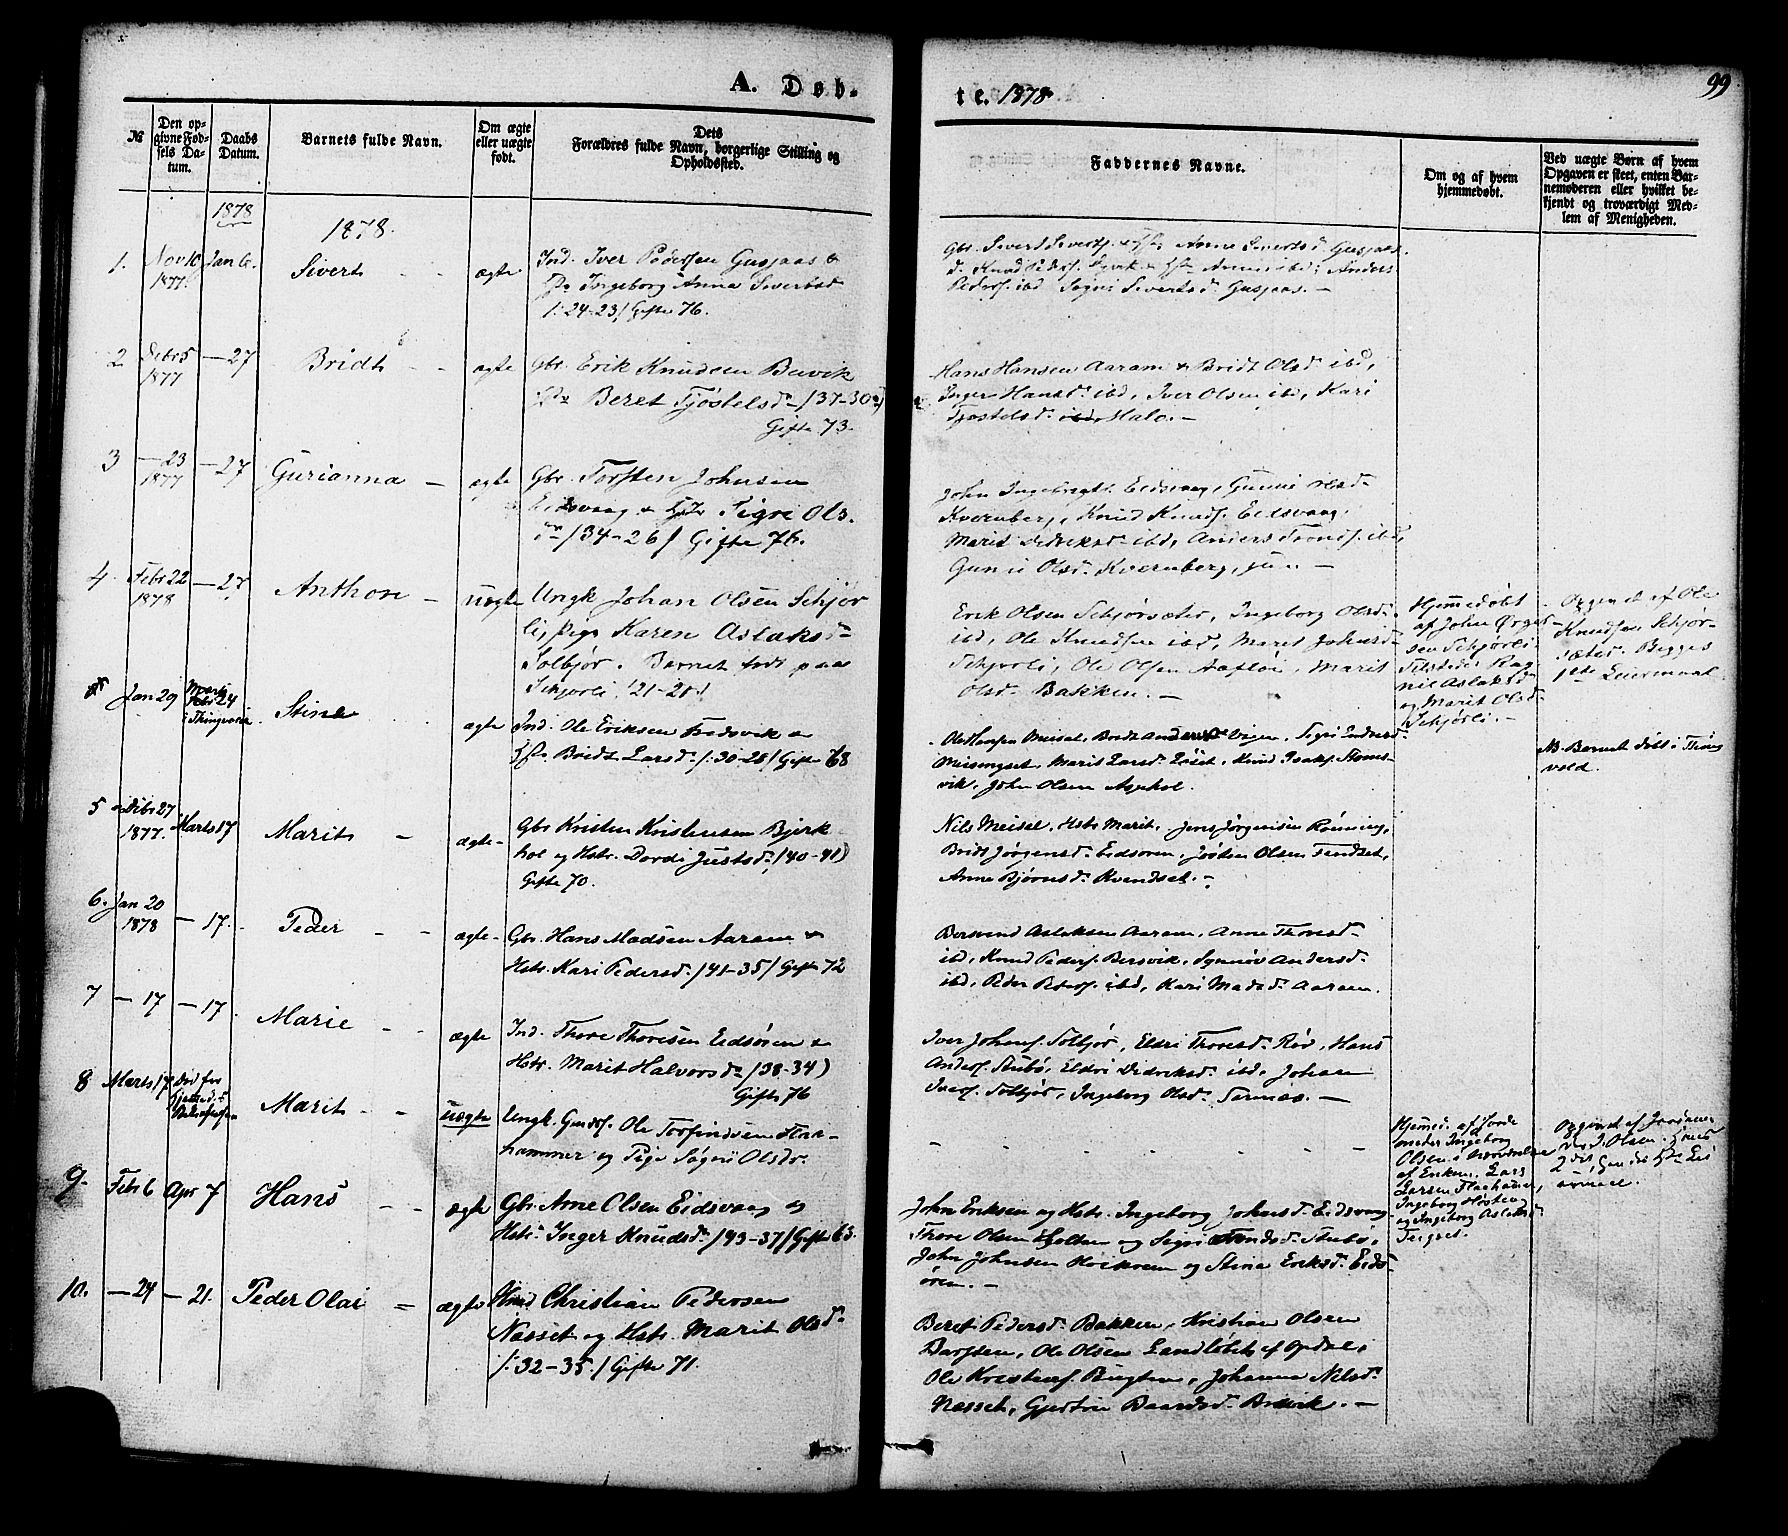 A. Døb-
te. 1878
99
№
Den op-
givne Fød-
sels Da-
tum.
Daabs
Datum.
Barnets fulde Navn.
Om ægte
eller uægte
født.
Dets
Forældres fulde Navn, borgerlige Stilling og
Opholdssted.
Faddernes Navne.
Om og af hvem
hjemmedøbt.
Ved uægte Børn af hvem
Opgaven er skeet, enten Bar-
nemoderen eller hvilket be-
kjendt og troværdigt Med-
lem af Menigheden.
1878
1878.
1. Nov 10 1877 Jan 6. Sivert - - ægte
Ind. Iver Pedersen Gusjaas &
Ingeborg Anna Sivertsd
/: 24-23/ Gifte 76.
Gbr. Sivert Siverts. Anne Sivertsd Gusjaas.
Knud Peders. ibd; Anders
Peders. ibd Sigri Sivertsd. Gusjaas. -
2 Debr 5 1877 - 27 Bridt - ægte
Gbr. Erik Knudsen Buvik
Beret Tjøstelsd. /37-30/
Gifte 73.
Hans Hansen Aaram & Bridt Olsd ibd,
Inger Hansd. ibd, Iver Olsen ibd, Kari
Tjøstelsd. Halo. -
3 - 23 1877 - 27 Gurianna - ægte
Gbr. Torsten Johnsen
Eidsvaag & Hstr Sigri Ols-
dr /34-26/ Gifte 76.
John Ingebrigts. Eidsvaag, Gunni Olsd.
Kvernberg, Knud Knuds. Eidsvaag,
Marit Didriksd. ibd, Anders Tronds. ibd,
Guni Olsd. Kvernberg, -
4 Febr 22 1878 - 27 Anthon - uægte
Ungk Johan Olsen Schjør-
li, Pige Karen Aslaksd.
Solbjør. Barnet født paa
Schjørli /21-21/
Erik Olsen Schjørsæter, Ingeborg Olsd.
ibd, Ole Knudsen ibd, Marit Johnsd.
Schjørli, Ole Olsen, Marit
Olsd. Bakken. -
Hjemmedøbt
af John Ørger-
sen Schjørli
Tilstede Rag-
nil Aslaksd
og Marit Olsd.
Schjørli. -
Opgivet af Ole
Knudsen Schjør-
sæter. Begges
1ste Leiermaal.
Jan 29 Marts 24 i Thingvold. Stine ægte
Ind. Ole Eriksen Fredsvik &
Hstr. Bridt Larsd. /: 30-28/ Gifte 68
Ole Hansen Meisal, Bridt Andersd, Sigri Endresd.
Meisingset, Marit Larsd. Løset, Knud Isaks.
vik, John Olsen Aspehol.
NB. Barnet døbt i Thing-
vold.
5 Debr 27 1877. Marts 17 Marit - ægte-
Gbr Kristen Kristensen Bjerk-
hol og Hstr. Dordi Justsd. /40-41/
Gifte 70.
Nils Meisal, Hstr Marit, Jens Jørgensen Rønning,
Bridt Jørgensd. Eidsøren, Jøsten Olsen Tendset,
Anne Bjørnsd. Kvendset. -
6. Jan 20 1878 - 17. Peder - - ægte-
Gbr. Hans Madsen Aaram &
Hstr. Kari Pedersd. /41-35/ Gifte 72
Bersvend Aslaksen Aaram, Anne Thoresd.
ibd, Knud Peders. Bersvik, Synnøv Andersd.
ibd, Peder Peters. ibd, Kari Madsd. Aaram.
7 - 17 - 17. Marie - - ægte
Ind. Thore Thoresen Eidsøren &
Hstr. Marit Halvorsd. /38-34/
Gifte 76
Iver Johans. Solbjør, Eldri Thoresd. Rød, Hans
Anders. Stubø, Eldri Didriksd. ibd, Johan
Ivers. Solbjør, Ingeborg Olsd. Ternæs. -
8 Marts 17 Død før Marit - - uægte
Ungk. Gaards. Ole Torfindsen Flaa-
hammer og Pige Sigri Olsdr.
- - - - - -
Hjemmed. af Jorde-
moder Ingeborg
Olsen i Overværelse
af Enken, Lars
Larsen Flaahamer,
Ingeborg
og Ingeborg Aslaksd
Tugset.
Opgivet af
Olsen.
9. Febr 6 Apr 7 Hans - - ægte
Gbr. Arne Olsen Eidsvaag og
Hstr. Inger Knudsd. /43-37/ Gifte 65.
John Eriksen og Hstr. Ingeborg Johnsd. Eidsvaag
Thore Olsen Holten og Sigri Trondsd. Stubø,
John Johnsen Høikrem og Stine Eriksd. Eids-
øren. -
10. - 24 - 21. Peder Olai - ægte
Christian Pedersen
Næsset og Hstr. Marit Olsd.
/: 32-35./ Gifte 71.
Beret Pedersd. Bakken, Kristian Olsen
Bargsten, Ole Olsen Landløbet af Opdal,
Ole Kristens. Bugten, Johanna Nilsd.
Næsset, Gjertrui Baardsd. Brevik. -